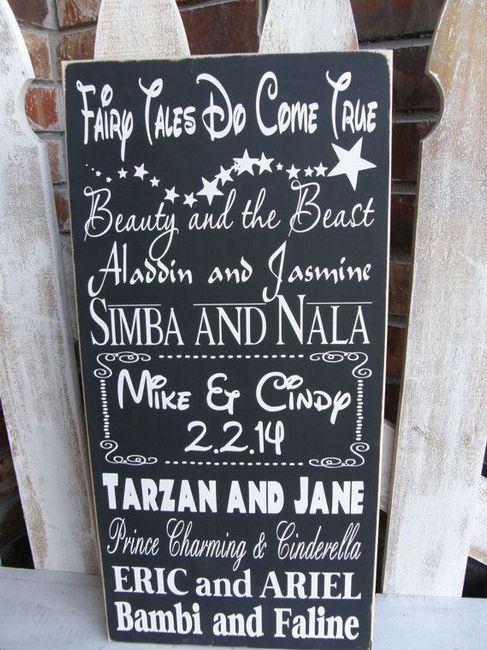 Fairy Tales Do Come True
Beauty and the Beast
Aladdin and Jasmine
SIMBA AND NALA
Mike & Cindy
2.2.14
TARZAN AND JANE
Prince Charming & Cinderella
ERIC and ARIEL
Bambi and Faline